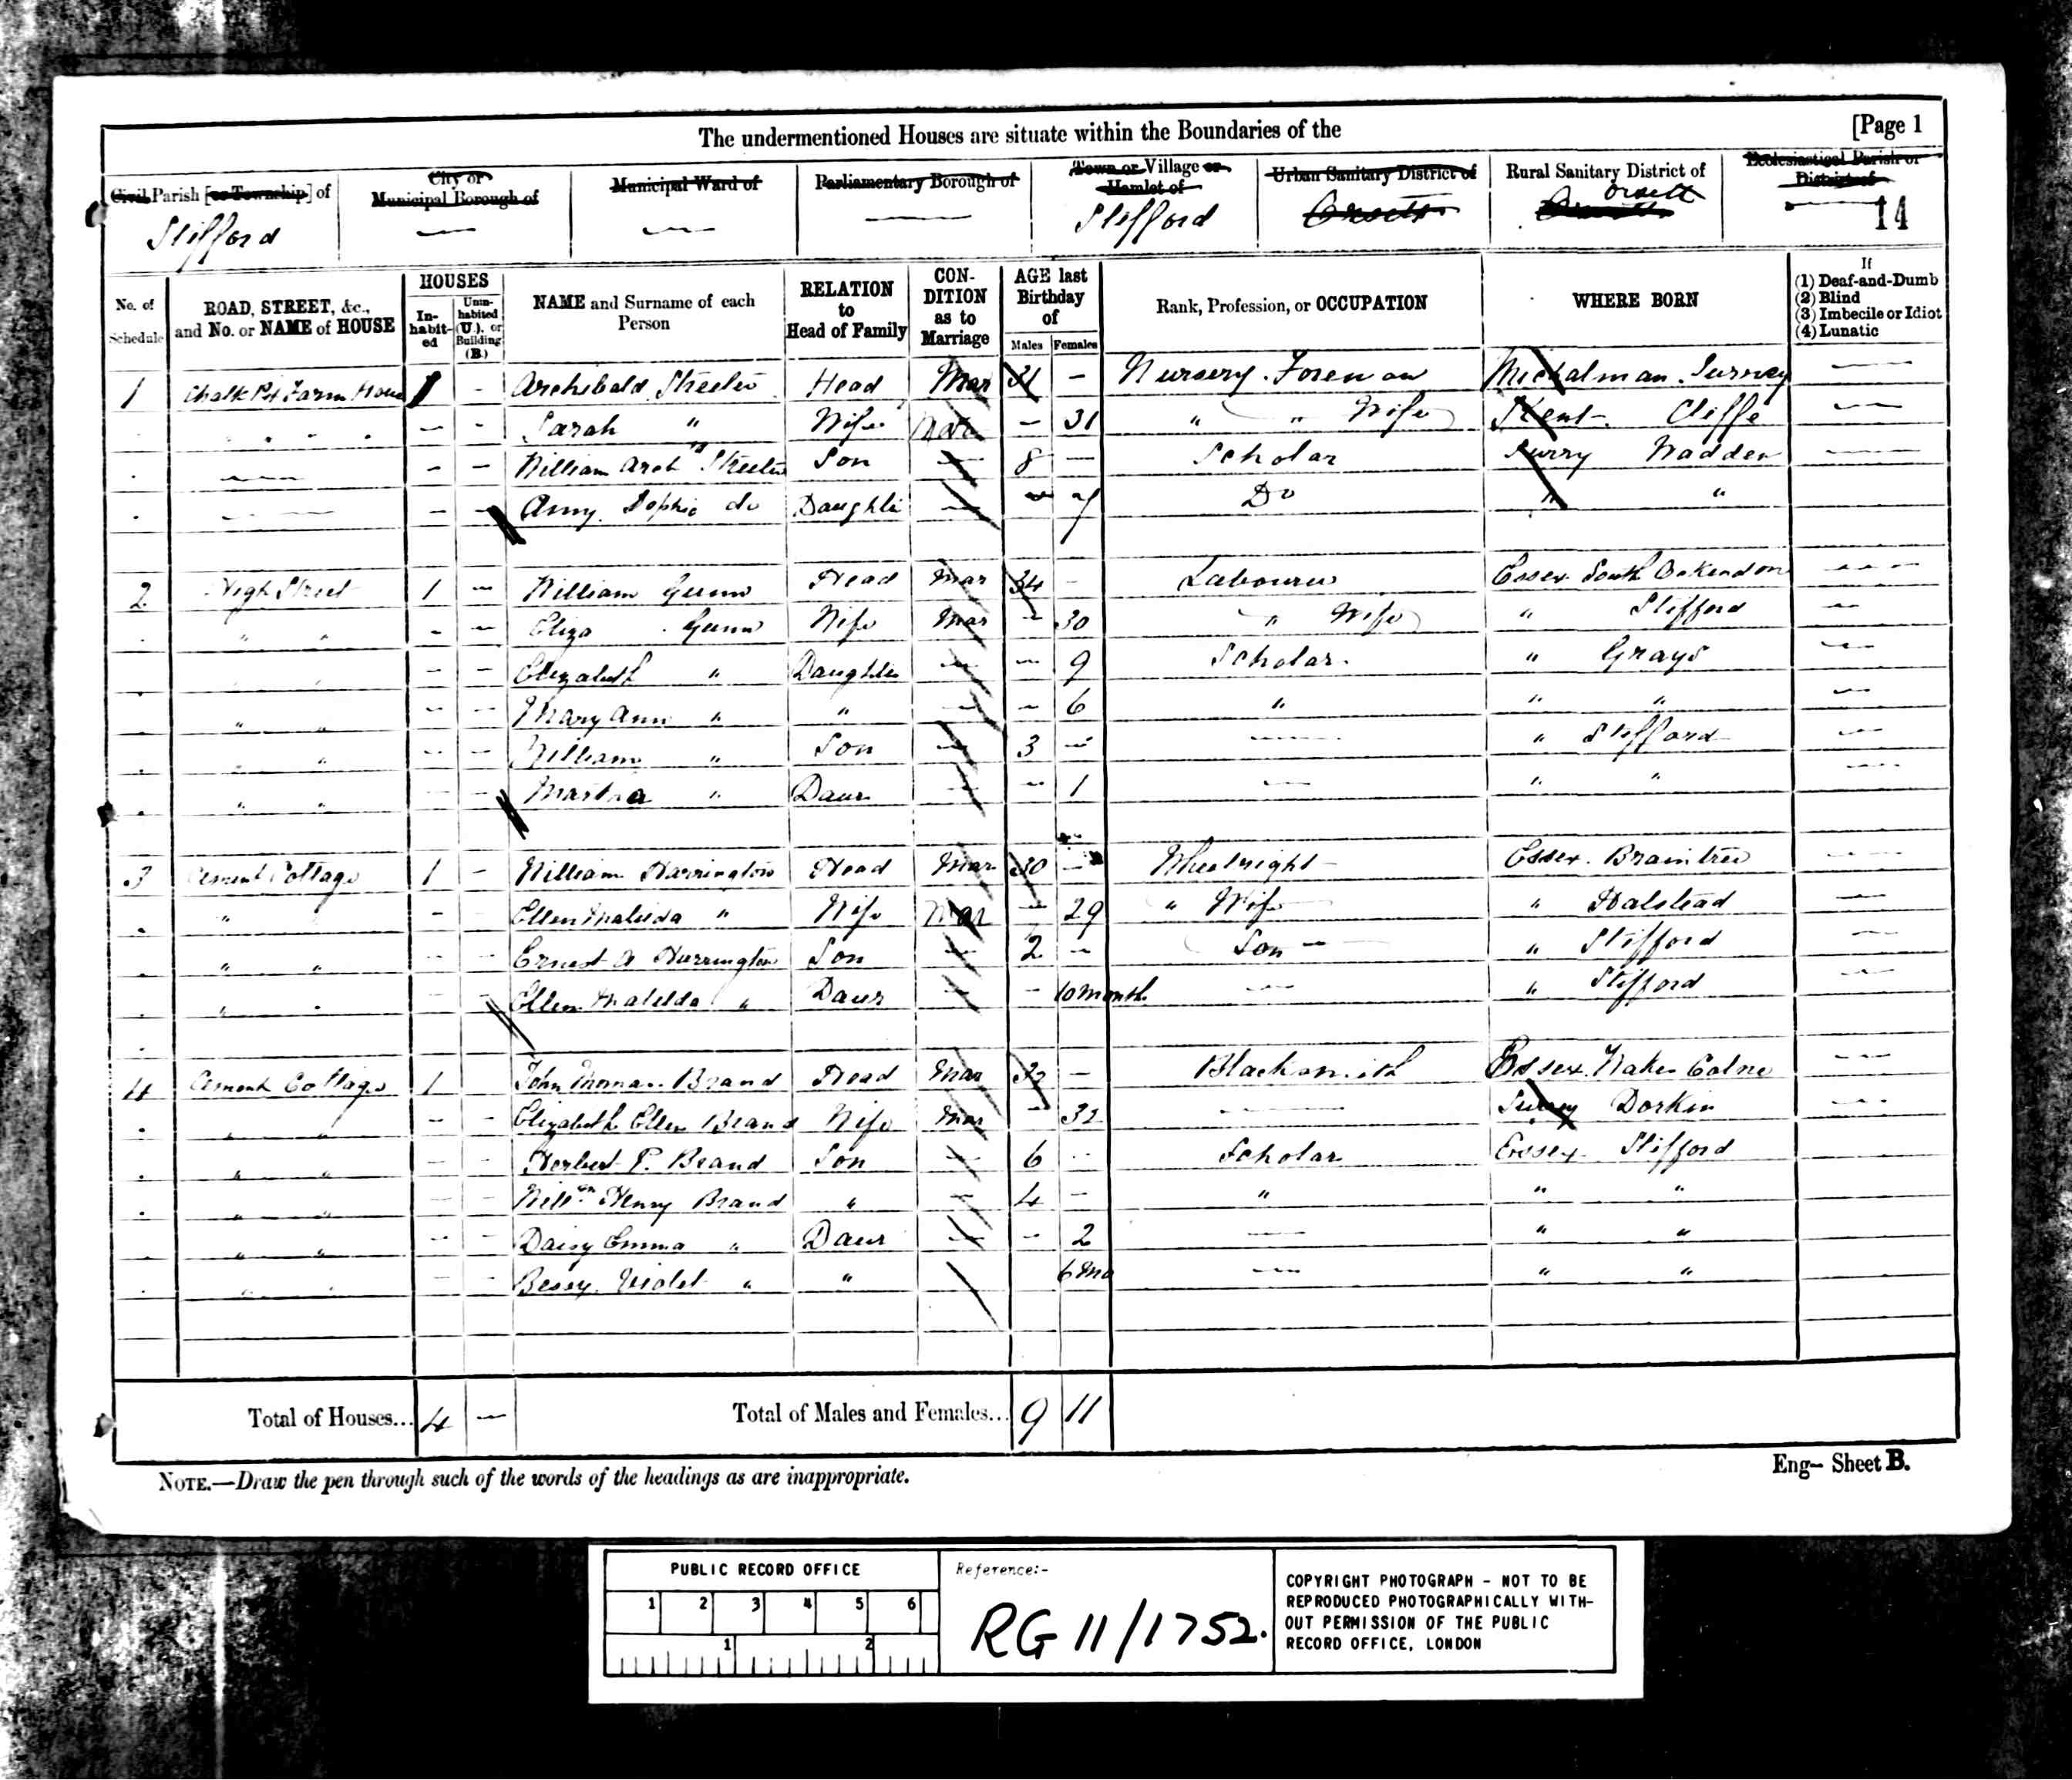 The undermentioned Houses are situate within the Boundaries of the [Page 1
Civil Parish [or Township] of City or Municipal Borough of Municipal Ward of Parliamentary Borough of Town or Village or Hamlet of Urban Sanitary District of Rural Sanitary District of Ecclesiastical Parish or District of
Stifford — — — Stifford Orsett Orsett 14
No. of Schedule ROAD, STREET, &c., and No. or NAME of HOUSE HOUSES Inhabited Uninhabited (U.), or Building (B.) NAME and Surname of each Person RELATION to Head of Family CONDITION as to Marriage AGE last Birthday of Males Females Rank, Profession, or OCCUPATION WHERE BORN If (1) Deaf-and-Dumb (2) Blind (3) Imbecile or Idiot (4) Lunatic
1 Chalk Pit Farm House 1 - Archibald Streeter Head Mar 31 - Nursery Foreman Michalman Surrey —
— - Sarah " Wife Mar - 31 " " Wife Kent Cliffe —
- - William Arch Streeter Son — 8 — Scholar Surry Waddon —
- - Amy Sophia do Daughter — - 7 Do " "
2 High Street 1 - William Gunn Head Mar 34 - Labourer Essex South Ockendon —
" " - - Eliza Gunn Wife Mar - 30 " Wife " Stifford —
- - Elizabeth " Daughter — - 9 Scholar " Grays —
" " - - Mary Ann " " — - 6 " " " —
" - - William " Son — 3 - — " Stifford —
" " - - Martha " Daur — - 1 — " " —
3 Cement Cottage 1 - William Harrington Head Mar 30 - Wheelright Essex Braintree —
" - - Ellen Matilda " Wife Mar - 29 " Wife " Halstead —
" " - - Ernest A Harrington Son — 2 - Son " Stifford —
" - - Ellen Matilda " Daur — - 10 month — " Stifford —
4 Cement Cottage 1 John Thomas Brand Head Mar 32 - Blacksmith Essex Wakes Colne —
" " - - Elizabeth Ellen Brand Wife Mar - 32 — Surrey Dorkin —
" " - - Herbert P. Brand Son — 6 - Scholar Essex Stifford
" " - - Willm Henry Brand " — 4 - " " "
" " - - Daisy Emma " Daur — - 2 — " "
" - - Bessy Violet " " 6 Mo — " "
Total of Houses... 4 — Total of Males and Females... 9 11
NOTE.—Draw the pen through such of the words of the headings as are inappropriate. Eng– Sheet B.
PUBLIC RECORD OFFICE
1 2 3 4 5 6
1 2
Reference:-
RG 11/1752.
COPYRIGHT PHOTOGRAPH - NOT TO BE
REPRODUCED PHOTOGRAPHICALLY WITH-
OUT PERMISSION OF THE PUBLIC
RECORD OFFICE, LONDON